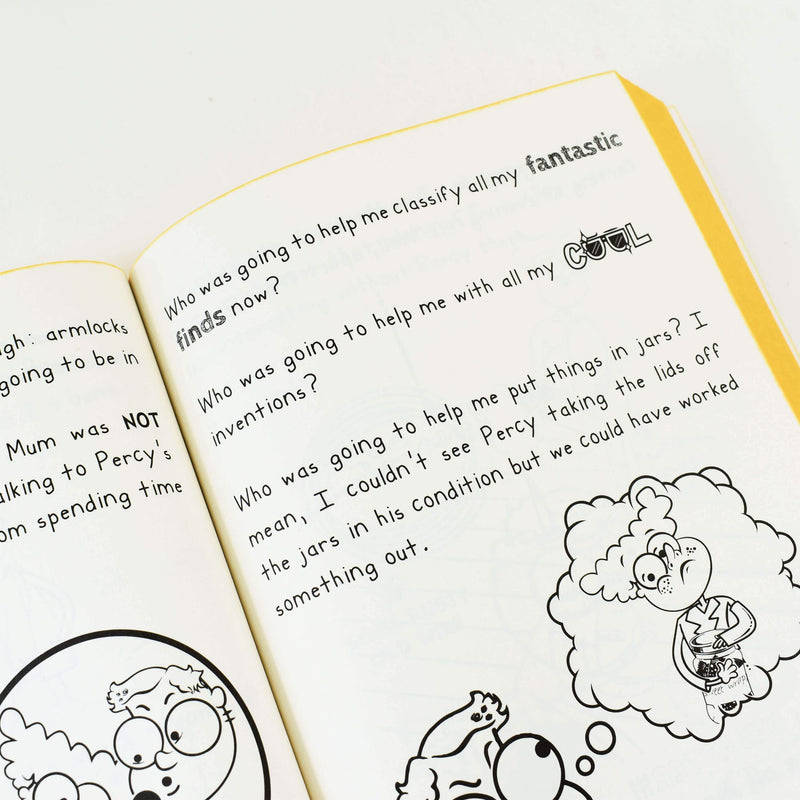 armlocks
going to be in
Mum was NOT
to Percy's
spending time
Who was going to help me classify all my fantastic
finds now?
Who was going to help me with all my COOL
inventions?
Who was going to help me put things in jars? I
mean, I couldn't see Percy taking the lids off
the jars in his condition but we could have worked
something out.